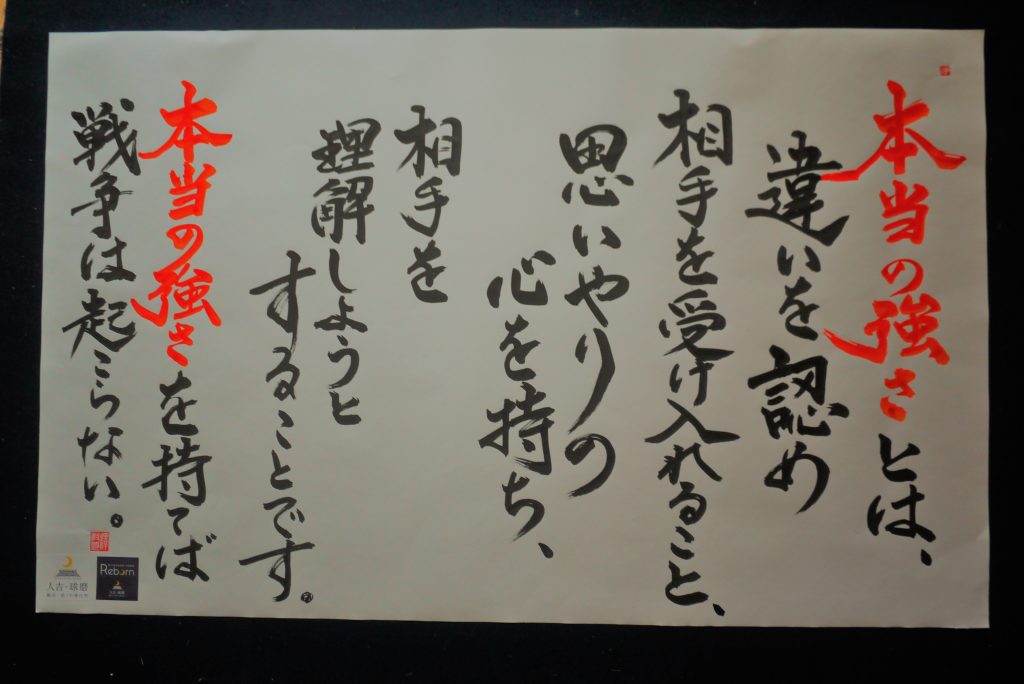 本当の強さとは、
違いを認め
相手を受け入れること、
思いやりの
心を持ち、
相手を
理解しようと
することです。
本当の強さを持てば
戦争は起こらない。
人吉・球磨
Reborn